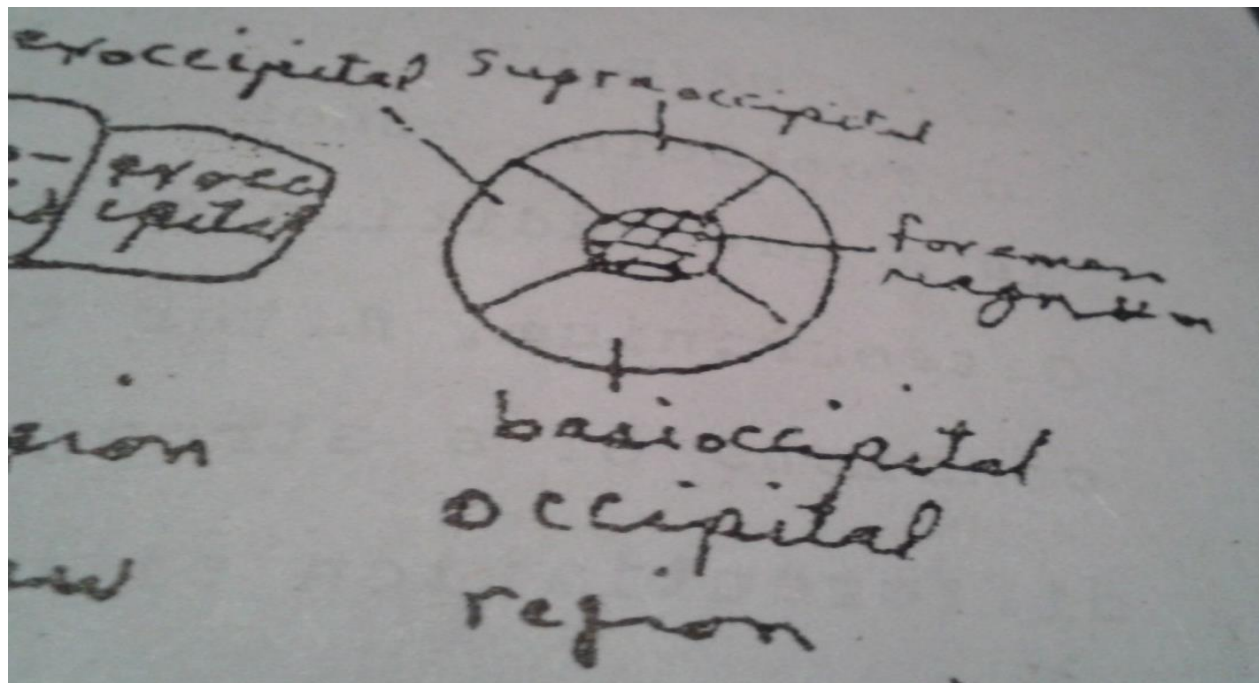 exoccipital Supraoccipital
exocc
ipital
foremen
magnum
basioccipital
occipital
region